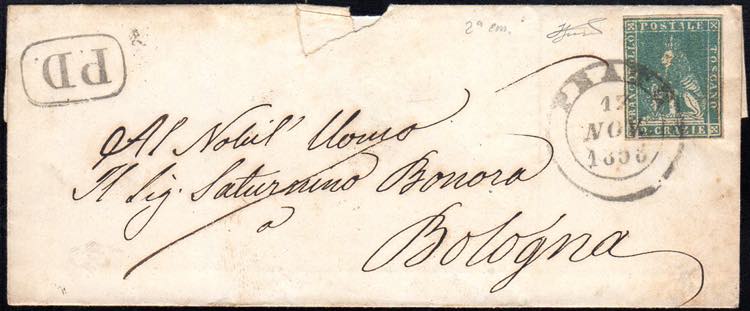 P.D.
2ª em.
FRANCOBOLLO
POSTALE
TOSCANO
CRAZIE
PRATO
NOV
Al Nobil' Uomo
Il Sig. Saturnino Bonora
a
Bologna